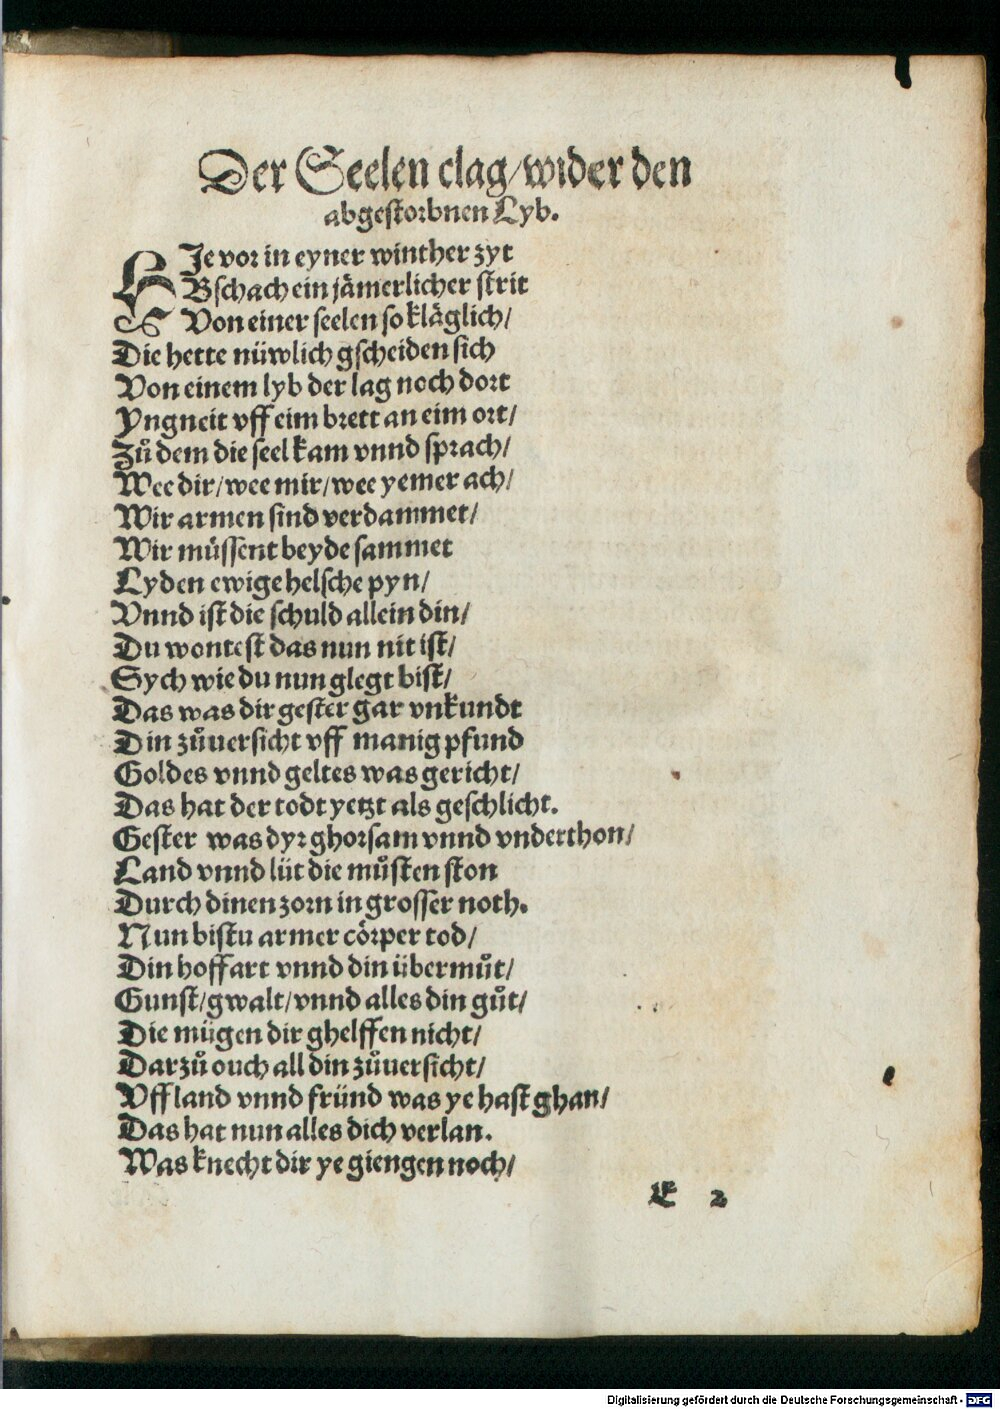 Der Seelen clag/wider den
abgestorbnen Lyb.
HJe vor in eyner winther zyt
Bschach ein jämerlicher strit
Von einer seelen so kläglich/
Die hette nüwlich gscheiden sich
Von einem lyb der lag noch dort
Yngneit vff eim brett an eim ort/
Zů dem die seel kam vnnd sprach/
Wee dir/wee mir/wee yemer ach/
Wir armen sind verdammet/
Wir müssent beyde sammet
Lyden ewige helsche pyn/
Vnnd ist die schuld allein din/
Du wontest das nun nit ist/
Sych wie du nun glegt bist/
Das was dir gester gar vnkundt
Din zůuersicht vff manig pfund
Goldes vnnd geltes was gericht/
Das hat der todt yetzt als geschlicht.
Gester was dyr ghorsam vnnd vnderthon/
Land vnnd lüt die můsten ston
Durch dinen zorn in grosser noth.
Nun bistu armer cörper tod/
Din hoffart vnnd din übermůt/
Gunst/gwalt/vnnd alles din gůt/
Die mügen dir ghelffen nicht/
Darzů ouch all din zůuersicht/
Vff land vnnd fründ was ye hast ghan/
Das hat nun alles dich verlan.
Was knecht dir ye giengen noch/
E 2
Digitalisierung gefördert durch die Deutsche Forschungsgemeinschaft - DFG